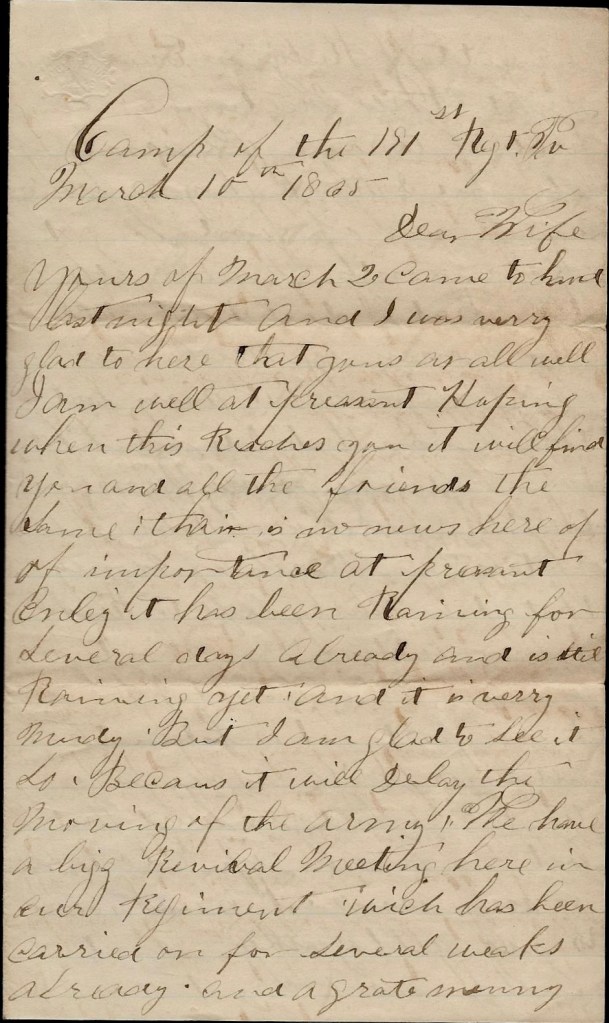 Camp of the 191st Regt. Pv
March 10th 1865
Dear Wife
Yours of March 2 came to hand
last night and I was verry
glad to here that yous as all well
I am well at preasent Hoping
when this Reaches you it will find
you and all the friends the
same : thair is no news here of
of importance at preasent
Onley it has been Raining for
several days already and is still
Raining yet : and it is verry
Mudy : But I am glad to see it
so . Becaus it will delay the
Moving of the army , We have
a bigg Revival Meeting here in
our Regiment wich has been
carried on for several weaks
already . and a grate menny